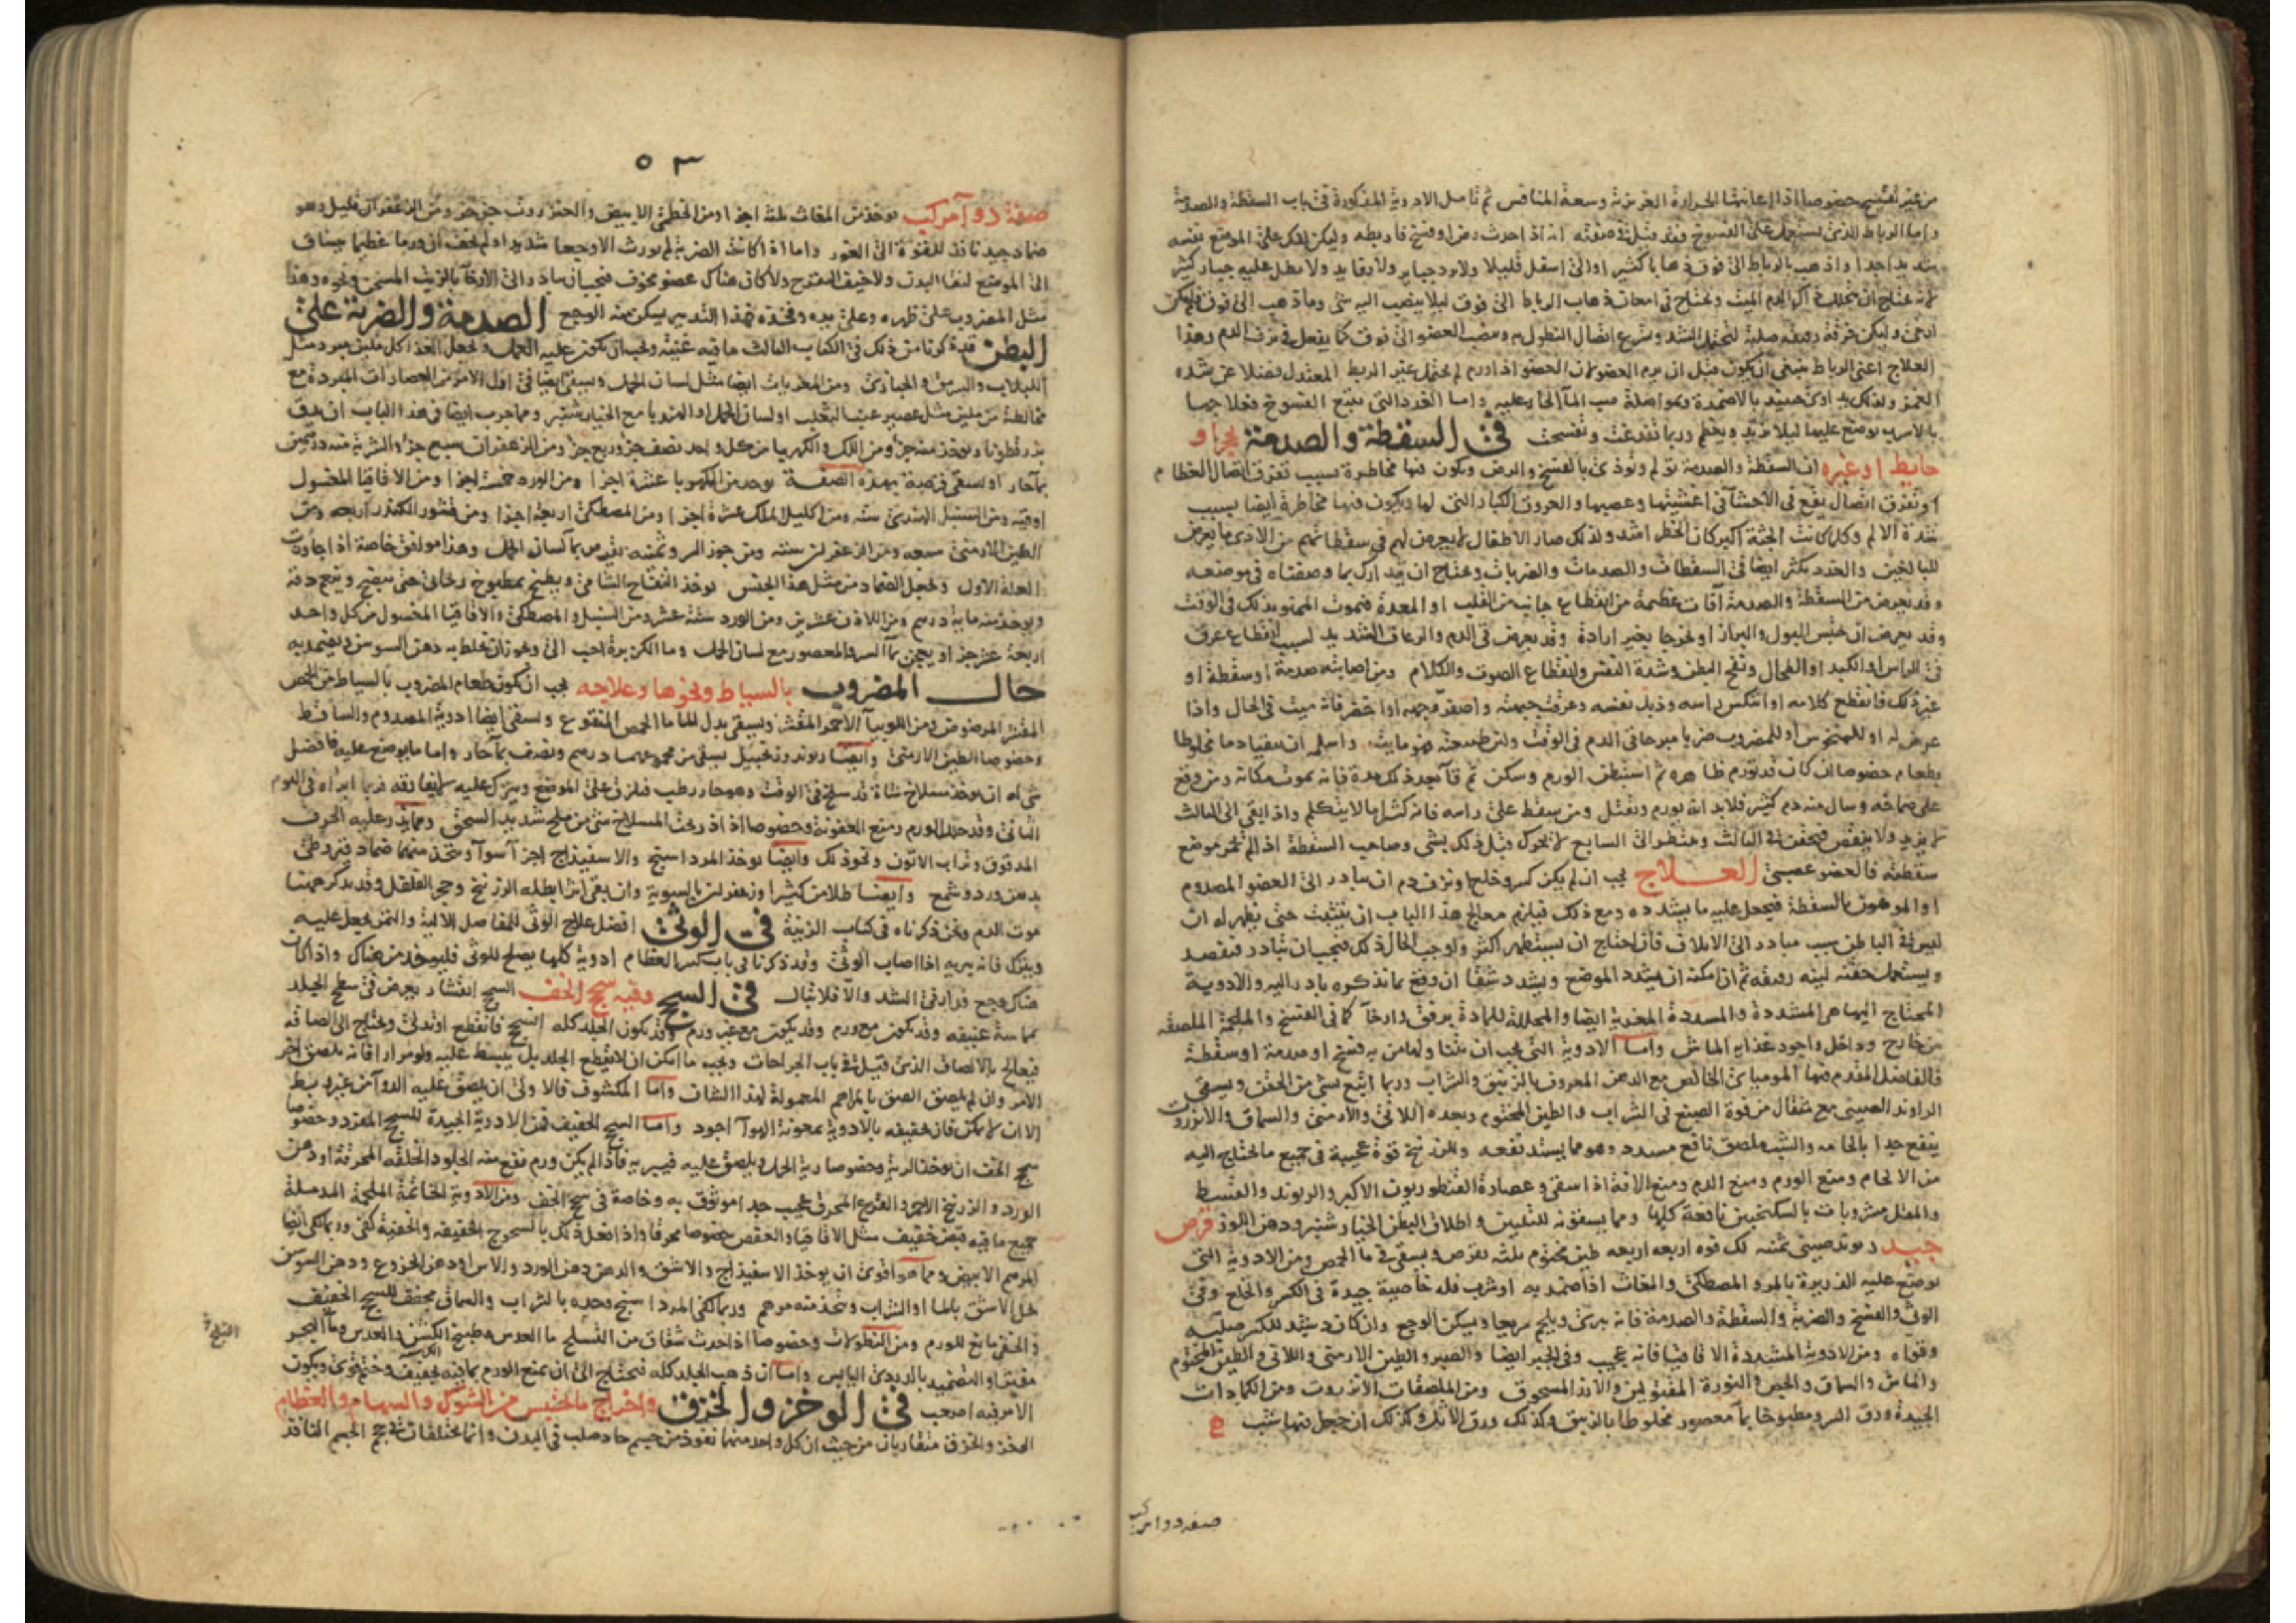 من غير تقيح خصوصا اذا اعانتها الحرارة الغريزية وسعة المنافس ثم تامل الادوية المذكورة في باب السقطة والصدمة
واما الرباط الذي يستعمل على الفسوخ فقد قيل في صفته انه اذا حدث رض او فسخ فاربطه وليكن لفك على الموضع نفسه
شديدا جدا واذهب بالرباط الى فوق ذهابا كثيرا والى اسفل قليلا ولا جباير ولا رفايد ولا بطل عليه كثير
لانه يحتاج ان يتحلل الدم الميت ويحتاج في امعان ذهاب الرباط الى فوق ليلا ينصب اليه شي وما ذهب الى فوق فليكن
ارخى وليكن خرقه رقيقه صلبة لتحتمل الشد وسرع اتصال النطول به ونصب العضو الى فوق كما يفعل في نزف الدم وهذا
العلاج اعنى الرباط ينبغي ان يكون قبل ان يرم العضو لان العضو اذا ورم لم يحتمل غير الربط المعتدل فضلا عن شده
الغمز ولذلك يداوى حينيد بالاضمدة ومواصلة صب الماء الحار عليه واما الغدد التي تتبع الفسوخ فعلاجها
بالاسرب يوضع عليها ليلا تزيد وتعظم وربما فدغت وفسخت في السقطة والصدمة بحجر او
حايط او غيره ان السقطة والصدمة تولم وتوذي بالفسخ والرض ويكون فيها مخاطرة بسبب تفرق اتصال العظام
او تفرق اتصال يقع في الاحشا في اغشيتها وعصبها والعروق الكبار التي لها ويكون فيها مخاطرة ايضا بسبب
شدة الالم وكلما كانت الجثة اكبر كان الخطر اشد ولذلك صار الاطفال لا يعرض لهم في سقطاتهم من الاذى ما يعرض
للبالغين والغدد يكثر ايضا في السقطات والصدمات والضربات ويحتاج ان يتدارك بما وصفناه في موضعه
وقد يعرض من السقطة والصدمة آفات عظيمة من انقطاع جانب من القلب او المعدة فيموت الممنو بذلك في الوقت
وقد يعرض ان يحتبس البول والبراز او يخرجا بغير ارادة وقد يعرض قى الدم والرعاف الشديد بسبب انقطاع عرق
في الراس او الكبد او الطحال ونفخ البطن وشدة النفس وانقطاع الصوت والكلام ومن اصابته صدمة او سقطة او
غير ذلك فانقطع كلامه او انتكس راسه وذبل نفسه وعرقت جبهته واصفر وجهه او اخضر فانه ميت في الحال واذا
بطعام خصوصا ان كان قد تورم ظاهره ثم استبطن الورم وسكن ثم قا بعد ذلك مدة فانه يموت مكانه ومن وقع
على صماخه وسال منه دم كثير فلابد ان يورم ويقتل ومن سقط على راسه فانه كثيرا ما لا يتكلم واذا بقى الى الثالث
لا يزيد ولا ينقص الثالث وينتظر الى السابع لا يحرك قبل ذلك بشي وصاحب السقطة اذا لم تحمر موضع
سقطته فالعضو عصبي العلاج يجب ان لم يكن كسر وخلع او نزف دم ان يبادر الى العضو المصدوم
او الموهون بالسقطة فيجعل عليه ما يشدده ومع ذلك فيلزم معالج هذا الباب ان يتثبت حتى يظهر له ان
ليس في الباطن سبب مبادر الى الاتلاف فان احتاج ان يستظهر اكثر واوجب الحال ذلك فيجب ان يبادر فيفصد
ويستعمل حقنه لينه رقيقه ثم ان امكنه ان يشدد الموضع ويشدد شقا ان وقع بما نذكره بادر اليه والادوية
المحتاج اليها هي المشددة والمسددة المغرية ايضا والمحللة للمادة برفق وارخا كما في الفسخ والملحمة الملصقه
من خارج وداخل واجود غذايه الماش واما الادوية التي يجب ان يشربها من به فسخ او صدمة او سقطة
فالفاضل المقدم فيها المومياي الخالص مع الدهن المعروف بالزنبق والشراب وربما اتبع بشي من الحقن ويسقى
الراوند الصيني مع مثقال من قوة الصبغ في الشراب والطين المختوم وبعده اللاني والارمني والسماق والانزروت
ينفع جدا بالحامه والشب ملصق نافع مسدد وهو مما يشتد نفعه وللزرنيخ قوة عجيبة في جميع ما يحتاج اليه
من الالحام ومنع الورم ومنع الدم ومنع الافة اذا سقى وعصارة القنطوريون الاكبر والريوند والقسط
والمقل مشروبات بالسكنجبين نافعة كلها ومما يسقونه للتليين واطلاق البطن الخيار شنبر ودهن اللوز قرص
جيد ريوند صيني ثمنه لك قوه اربعه اربعه طين مختوم ثلثه يقرص ويسقى في ما الحمص ومن الادوية التي
توضع عليه الذريرة بالمر والمصطكى والمغاث اذا ضمد به او شرب فله خاصية جيدة في الكسر والخلع وفي
الوثي والفسخ والضربة والسقطة والصدمة فانه يبرى ويلحم سريعا ويسكن الوجع وان كان شد للكسر صلبه
وقواه ومن الادوية المشددة الاقاقيا فانه عجيب وفي الجبر ايضا والصبر والطين الارمني واللاني والطين المختوم
والماش والسماق والجص والنورة المقتولين والارز المسحوق ومن الملصقات الانزروت ومن الكمادات
الجيدة ورق السرو مطبوخا بما معصور مخلوطا بالزنبق وكذلك ورق الاثل وكذلك ان جعل فيها شب
صفه دوا مركب
٥٣
صفة دوآ مركب يوخذ من المغاث ثلثة اجزا ومن الخطمي الابيض والحنزروت جزء جزء ومن الزعفران قليل وهو
ضماد جيد نافذ للقوة الى الغور واما اذا كانت الضربة لم تورث الا وجعا شديدا ولم يخف ان ورما عظيما ينساق
الى الموضع لنقا البدن ولا خيف التقرح ولا كان هناك عضو مخوف فيجب ان يبادر الى الارخا بالزيت المسخن ونحوه وهذا
مثل المضروب على ظهره وعلى يده وفخذه فهذا التدبير يسكن منه الوجع الصدمة والضربة على
البطن قد ذكرنا من ذلك في الكتاب الثالث ما فيه غنية ويجب ان يكون عليه العمل ويجعل الغذا كل ملين مبرد مثل
اللبلاب والسرمق والخبازى ومن المغريات ايضا مثل لسان الحمل ويسقى ايضا في اول الامر من العصارات المبردة مع
مخالطة من ملين مثل عصير عنب الثعلب او لسان الحمل او الهندبا مع الخيار شنبر ومما جرب ايضا في هذا الباب ان يدق
بزر قطونا ويوخذ منه جز ومن اللك والكهربا من كل واحد نصف جز وربع جز ومن الزعفران سبع جز والشربة منه درهمين
بما حار او يسقى قرصة بهذه الصفة يوخذ من الكهربا عشرة اجزا ومن الورد خمسة اجزا ومن الاقاقيا المغسول
اوقيه ومن السنبل الهندي سته ومن اكليل الملك عشرة اجزا ومن المصطكى اربعة اجزا ومن قشور الكندر اربعه ومن
الطين الارمني سبعه ومن الزعفران سته ومن جوز السرو ثمنه يقرص بما لسان الحمل وهذا موافق خاصة اذا جاوزت
العلة الاول ويجعل الضماد من مثل هذا الجنس يوخذ التفاح الشامي ويطبخ بمطبوخ ريحاني حتى ينضج وينعم دقه
ويوخذ منه مايه درهم ومن اللاذن عشرين ومن الورد ستة عشر ومن السنبل والمصطكى والاقاقيا المغسول من كل واحد
اربعة عشر جز او يعجن بما السرو المعصور مع لسان الحمل وما الكزبرة احب الى ويجوز ان يخلط به دهن السوسن ويضمد به
حال المضروب بالسياط ونحوها وعلاجه يجب ان يكون طعام المضروب بالسياط من الحمص
المقشر المرضوض ومن اللوبيا الاحمر المقشر ويسقى بدل الما ما الحمص المنقوع ويسقى ايضا ادوية المصدوم والساقط
وخصوصا الطين الارمني وايضا ريوند وزنجبيل يسقى من مجموعهما درهم ونصف بما حار واما ما يوضع عليه فافضل
شي له ان يوخذ مسلاخ شاة قد سلخ في الوقت وهو حار رطب فيلزق على الموضع ويترك عليه لا يفارقه فربما ابراه في اليوم
الثاني وقد حلل الورم ومنع العفونة وخصوصا اذا ذر تحت المسلاخ شي من ملح شديد السحق ومما يذر عليه الخزف
المدقوق وتراب الاتون ونحو ذلك وايضا يوخذ المرداسنج والاسفيذاج اجزا سوا ويتخذ منهما ضماد قيروطي
بدهن ورد وشمع وايضا طلا من كثيرا وزعفران بالسوية وان بقى اثر ابطله الزرنيخ وحجر الفلفل وقد يذكر معهما
موت الدم ونحن ذكرناه في كتاب الزينة في الوثي افضل علاج الوثى للمفاصل الالية والتمر يجعل عليه
ويترك فانه يبريه اذا اصاب الوثي وقد ذكرنا في باب كسر العظام ادوية كلها يصلح للوثى فليوخذ من هناك واذا كان
هناك وجع فدارفى الشد والا فلا تبال في السحج وفيه سحج الخف السحج انقشار يعرض في سطح الجلد
بمماسة عنيفه وقد يكون مع ورم وقد يكون مع غير ورم وقد يكون الجلد كله انسحج فانقطع او تدلى ويحتاج الى الصاقه
فيعالج بالالصاق الذي قيل في باب الجراحات ويجب ما امكن ان لا يقطع الجلد بل يبسط عليه ولو مرارا فانه يلصق اخر
الامر وان لم يلصق الصق بالمراهم المعمولة لهذا الشان واما المكشوف فالاولى ان يلصق عليه الدوآ من غير ربط
الا ان لا يمكن فان تجفيفه بالادوية بمعونة الهوآ اجود واما السحج الخفيف فمن الادوية الجيدة للسحج المفرد وخصوصا
سحج الخف ان يوخذ الرية وخصوصا رية الحمل ويلصق عليه فيبريه فاذا لم يكن ورم نفع منه الجلود الخلقه المحرقة او دهن
الورد والزرنيخ الاحمر والقرع المحرق عجيب جدا موثوق به وخاصة في سحج الخف ومن الادوية الخاتمة الملحمة المدملة
جميع ما فيه قبض خفيف مثل الاقاقيا والعفص خصوصا محرقا واذا فعل ذلك بالسحوج الخفيفه والخفية كفى وربما كفى ايضا
المرهم الابيض ومما هو اقوى ان يوخذ الاسفيذاج والاشق والدهن دهن الورد والاس او دهن الخروع ودهن السوسن
يحل الاشق بالما او الشراب ويتخذ منه مرهم وربما كفى المرداسنج وحده بالشراب والسماق مجفف للسحج الخفيف
والحنى مانع للورم ومن النطولات وخصوصا اذا حدث شقاق من التسلخ ما العدس وطبيخ الكشن والعدس وما البحر
مفيترا والتضميد بالدردي اليابس واما ان ذهب الجلد كله فيحتاج الى ان يمنع الورم بما فيه تجفيف وختم قوي ويكون
الامر فيه اصعب في الوخز والخزق واخراج ما يحتبس من الشوك والسهام والعظام
الوخز والخزق متقاربان من حيث ان كل واحد منهما نفوذ من جسم حاد صلب في البدن وانما يختلفان في حجم الجسم النافذ